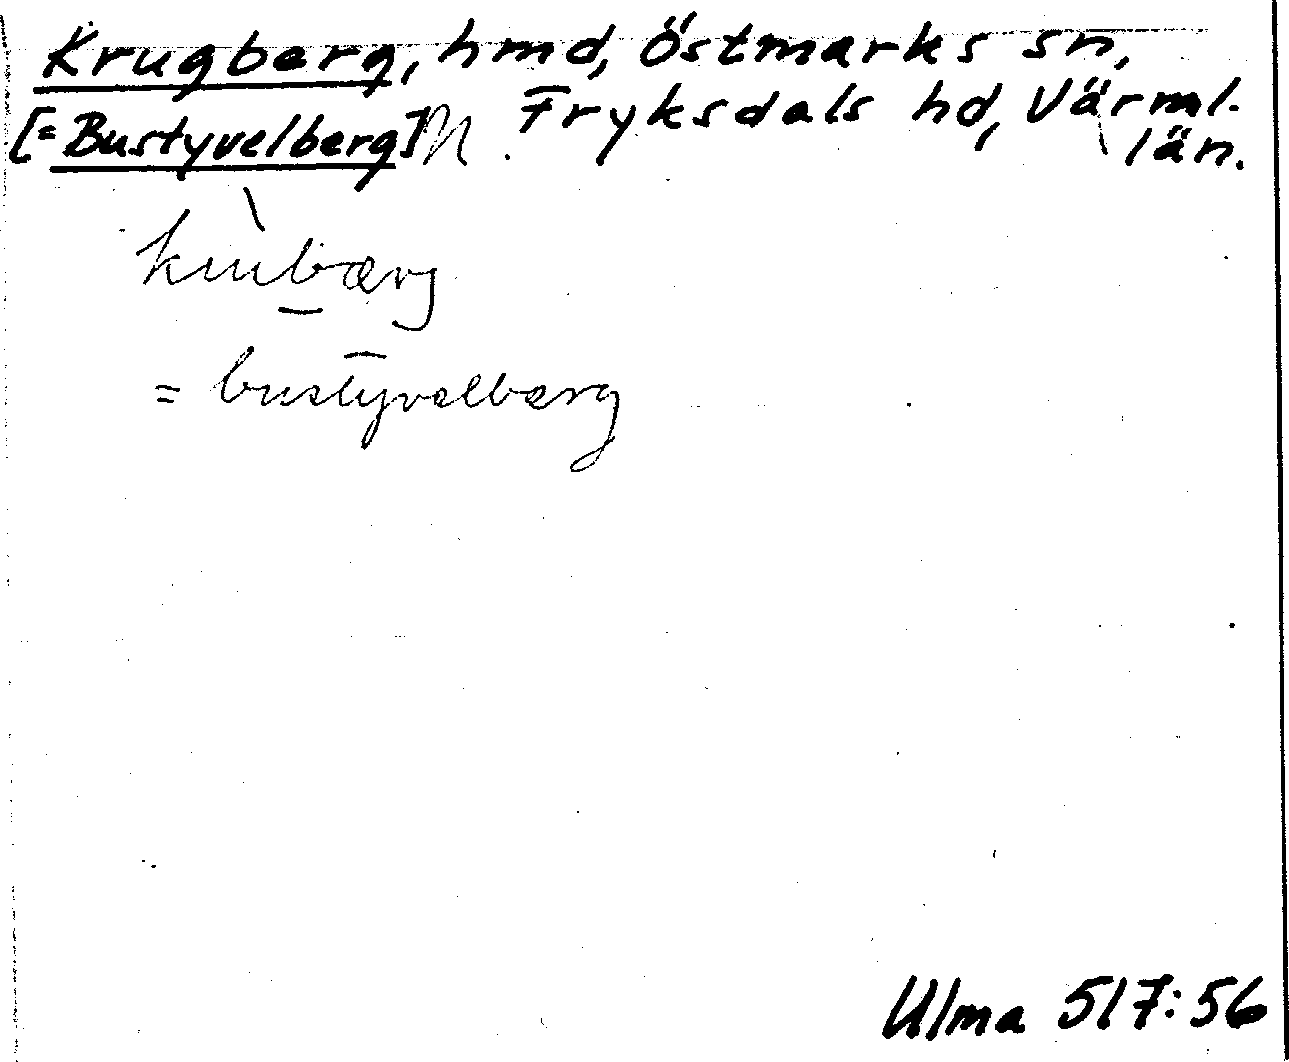 Krugberg, hmd, Östmarks sn,
[= Bustyvelberg] Fryksdals hd, Värml.
län.
= bustyvelbærg
Ulma 517:56